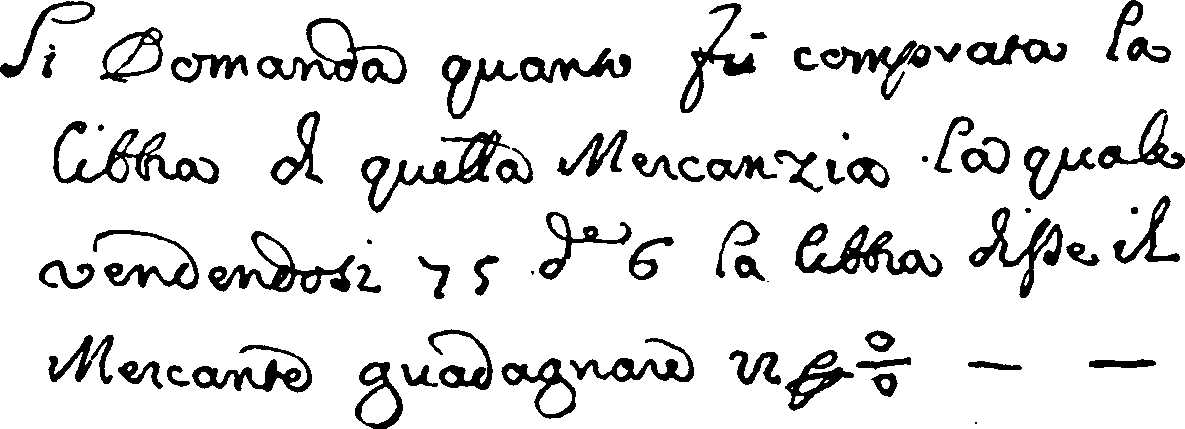 Si Domanda quanto fù comprata la
libbra di quella Mercanzia la quale
vendendosi 75 de 6 la libbra disse il
Mercante guadagnare 12 p % — —